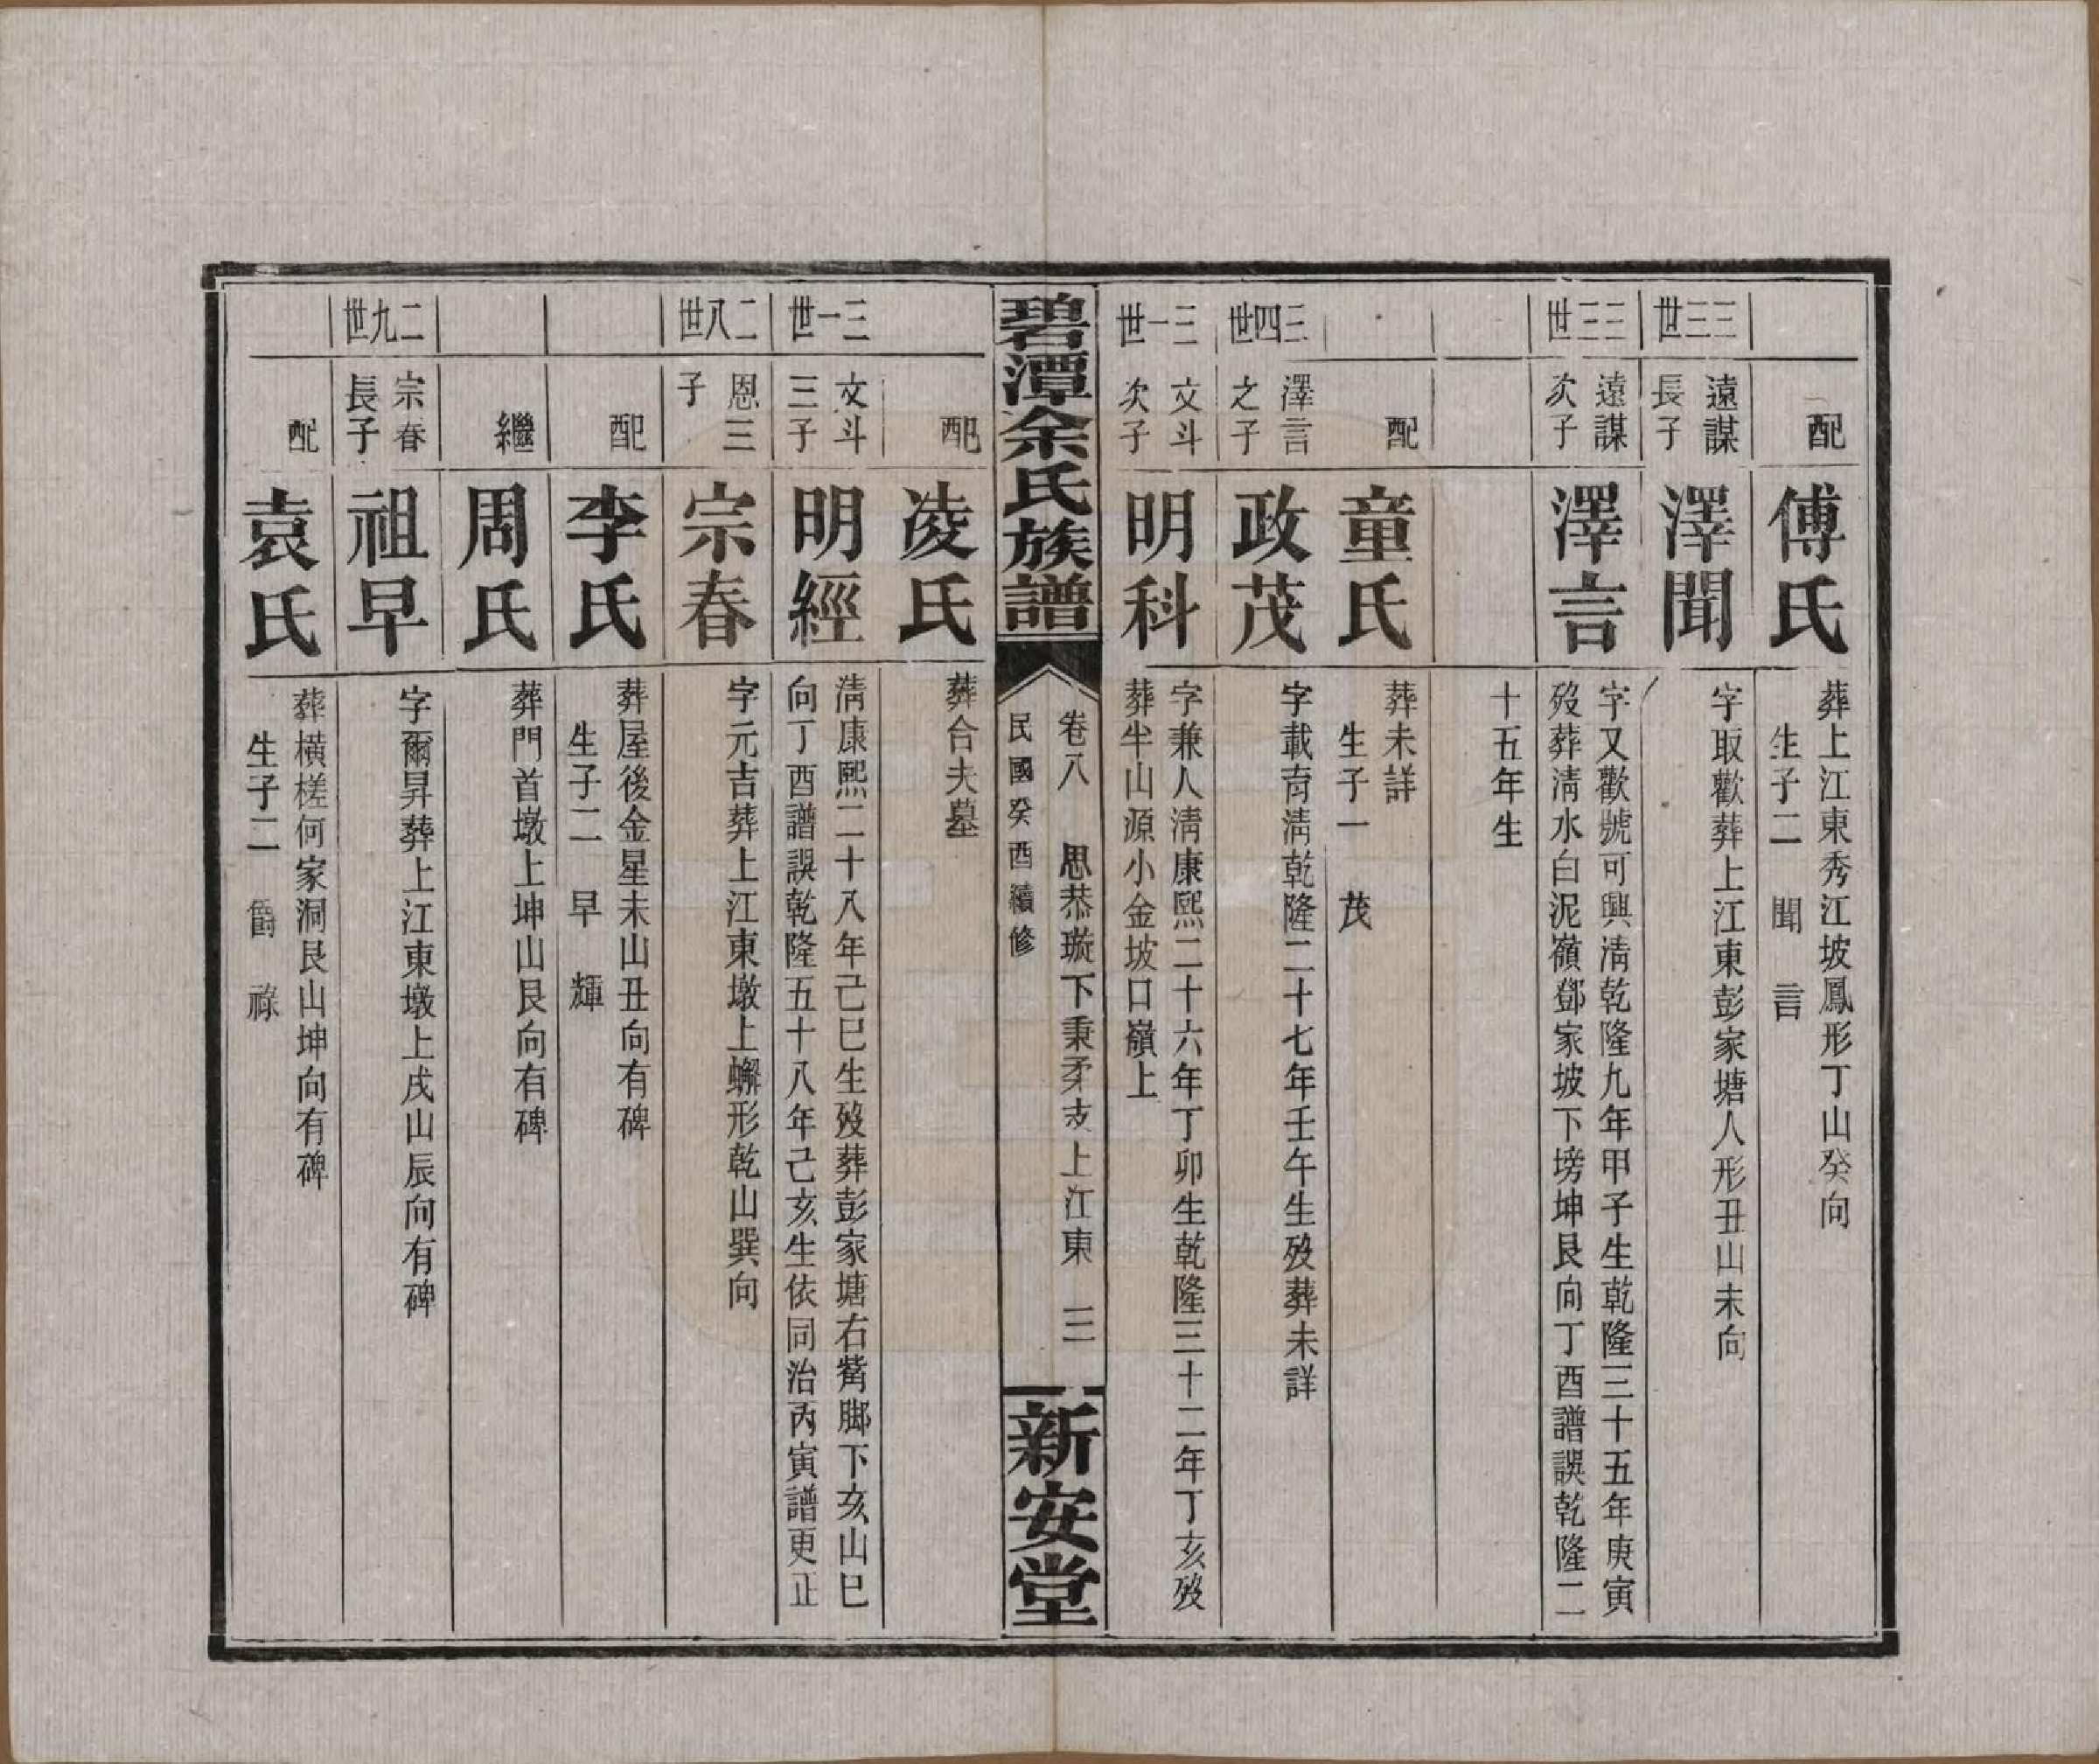 配
傅氏
葬上江東秀江坡鳳形丁山癸向
生子二 聞 言
三三世
遠謀
長子
澤聞
字取歡葬上江東彭家塘人形丑山未向
三三世
遠謀
次子
澤言
字又歡號可興淸乾隆九年甲子生乾隆三十五年庚寅
歿葬淸水白泥嶺鄧家坡下塝坤艮向丁酉譜誤乾隆二
十五年生
配
童氏
葬未詳
生子一 茂
三四世
澤言
之子
政茂
字載育淸乾隆二十七年壬午生歿葬未詳
三一世
文斗
次子
明科
字兼人淸康熙二十六年丁卯生乾隆三十二年丁亥歿
葬半山源小金坡口嶺上
碧潭余氏族譜
卷八 思恭璇下秉矛支上江東 三
民國癸酉續修
新安堂
配
凌氏
葬合夫墓
三一世
文斗
三子
明經
淸康熙二十八年己巳生歿葬彭家塘右觜脚下亥山巳
向丁酉譜誤乾隆五十八年己亥生依同治丙寅譜更正
二八世
恩三
子
宗春
字元吉葬上江東墩上蠏形乾山巽向
配
李氏
葬屋後金星未山丑向有碑
生子二 早 輝
繼
周氏
葬門首墩上坤山艮向有碑
二九世
宗春
長子
祖早
字爾昇葬上江東墩上戌山辰向有碑
配
袁氏
葬橫槎何家洞艮山坤向有碑
生子二 爵 祿